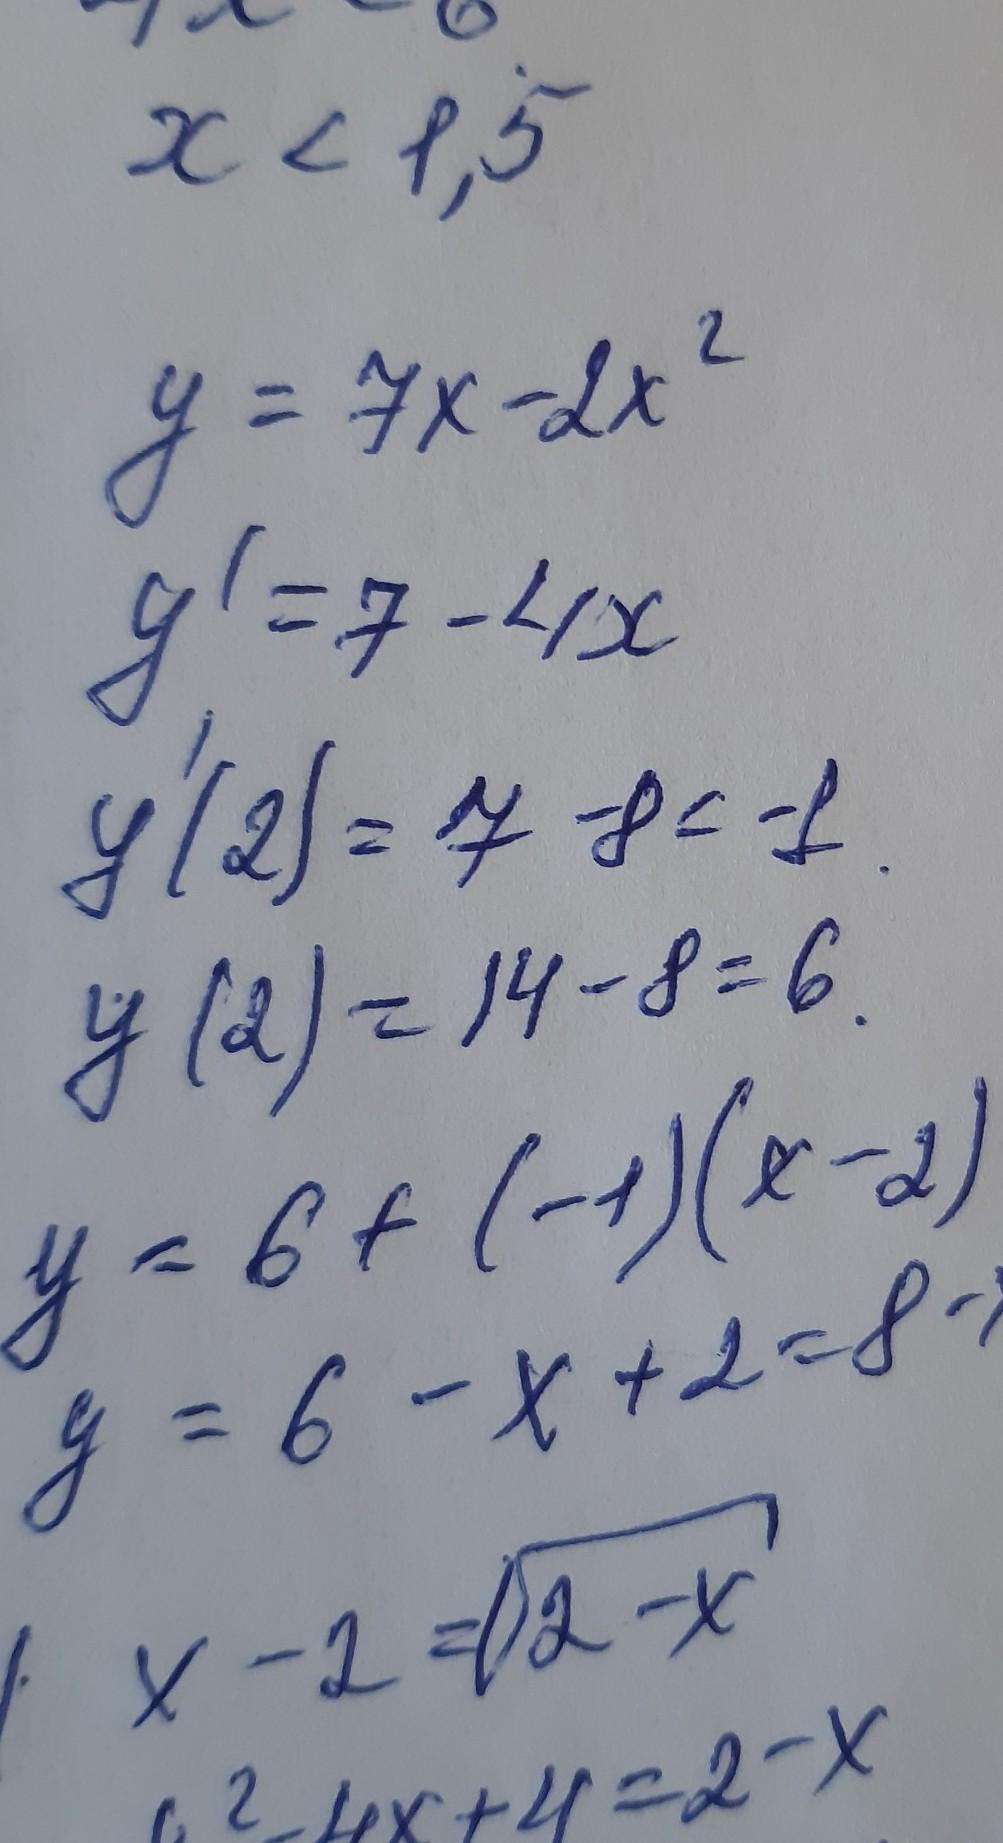 x < 1,5
y = 7x - 2x²
y' = 7 - 4x
y'(2) = 7 - 8 = -1.
y(2) = 14 - 8 = 6.
y = 6 + (-1)(x - 2)
y = 6 - x + 2 = 8 -
x - 2 = √(2 - x)
² - 4x + 4 = 2 - x